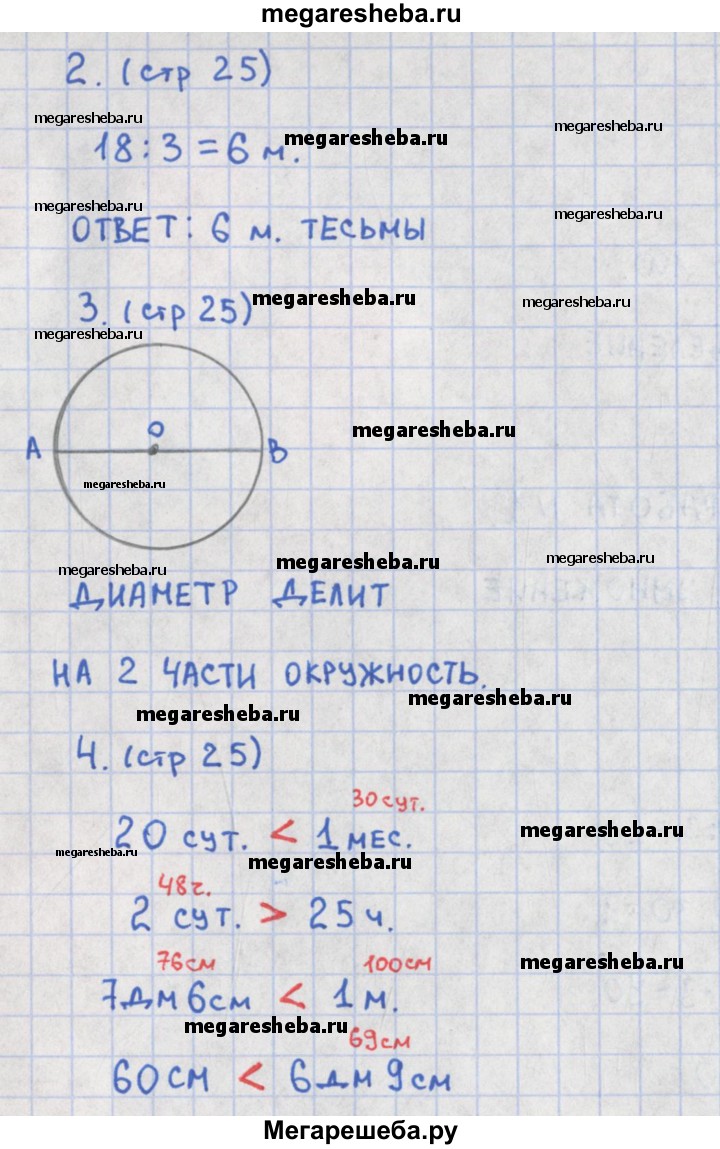 megaresheba.ru
2. (стр 25)
megaresheba.ru
megaresheba.ru
megaresheba.ru
18 : 3 = 6 м.
megaresheba.ru
megaresheba.ru
ОТВЕТ: 6 м. ТЕСЬМЫ
3. (стр 25)
megaresheba.ru
megaresheba.ru
megaresheba.ru
О
megaresheba.ru
А
В
megaresheba.ru
megaresheba.ru
megaresheba.ru
megaresheba.ru
ДИАМЕТР ДЕЛИТ
НА 2 ЧАСТИ ОКРУЖНОСТЬ.
megaresheba.ru
megaresheba.ru
4. (стр 25)
30 сут.
20 сут. < 1 мес.
megaresheba.ru
megaresheba.ru
megaresheba.ru
48 ч.
2 сут. > 25 ч.
76 см 100 см
megaresheba.ru
7 дм 6 см < 1 м.
megaresheba.ru
69 см
60 см < 6 дм 9 см
Мегарешеба.ру